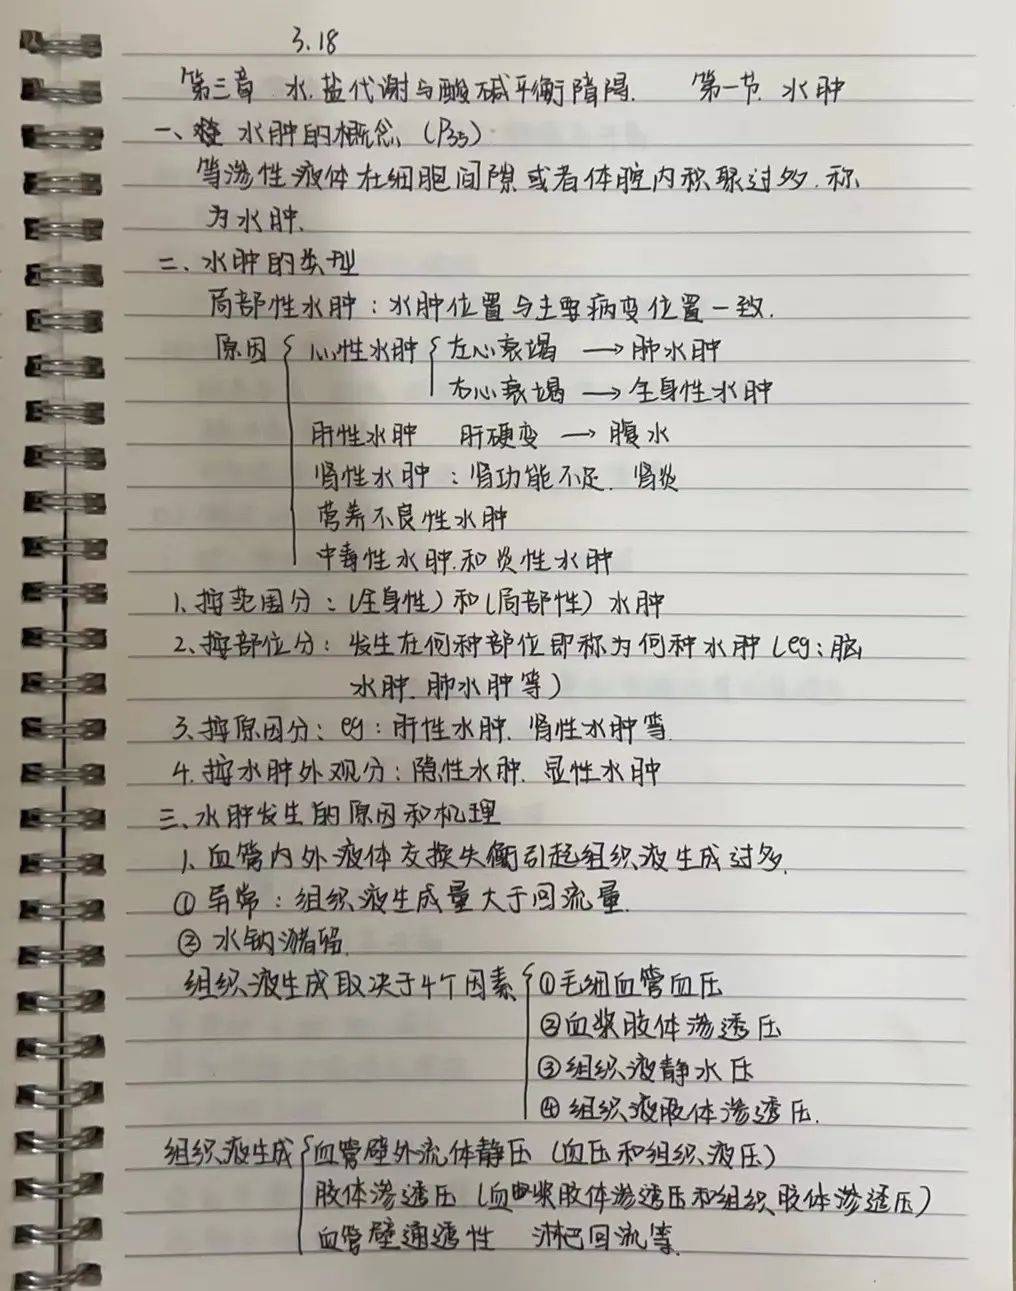 3.18
第三章 水.盐代谢与酸碱平衡障碍. 第一节. 水肿
一、水肿的概念 (P35)
等渗性液体在细胞间隙或者体腔内积聚过多.称
为水肿.
二、水肿的类型
局部性水肿：水肿位置与主要病变位置一致.
原因 { 心性水肿 { 左心衰竭 → 肺水肿
右心衰竭 → 全身性水肿
肝性水肿 肝硬变 → 腹水
肾性水肿：肾功能不足. 肾炎
营养不良性水肿
中毒性水肿.和炎性水肿
1. 按范围分：(全身性) 和 (局部性) 水肿
2. 按部位分：发生在何种部位即称为何种水肿 (eg：脑
水肿. 肺水肿等)
3. 按原因分：eg：肝性水肿. 肾性水肿等
4. 按水肿外观分：隐性水肿. 显性水肿
三、水肿发生的原因和机理
1. 血管内外液体交换失衡引起组织液生成过多.
① 异常：组织液生成量大于回流量.
② 水钠潴留.
组织液生成取决于4个因素 { ①毛细血管血压
②血浆胶体渗透压
③组织液静水压
④组织液胶体渗透压.
组织液生成 { 血管壁外流体静压 (血压和组织液压)
胶体渗透压 (血浆胶体渗透压和组织胶体渗透压)
血管壁通透性 淋巴回流等.